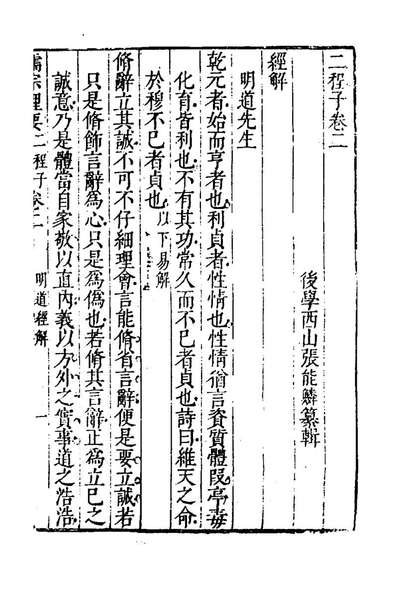 二程子卷二
後學西山張能鱗纂輯
經解
明道先生
乾元者始而亨者也利貞者性情也性情猶言資質體段亭毒
化育皆利也不有其功常久而不已者貞也詩曰維天之命
於穆不已者貞也以下易解
脩辭立其誠不可不仔細理會言能脩省言辭便是要立誠若
只是脩飾言辭為心只是為偽也若脩其言辭正為立己之
誠意乃是體當自家敬以直內義以方外之實事道之浩浩
儒宗理要二程子卷二
明道經解
一